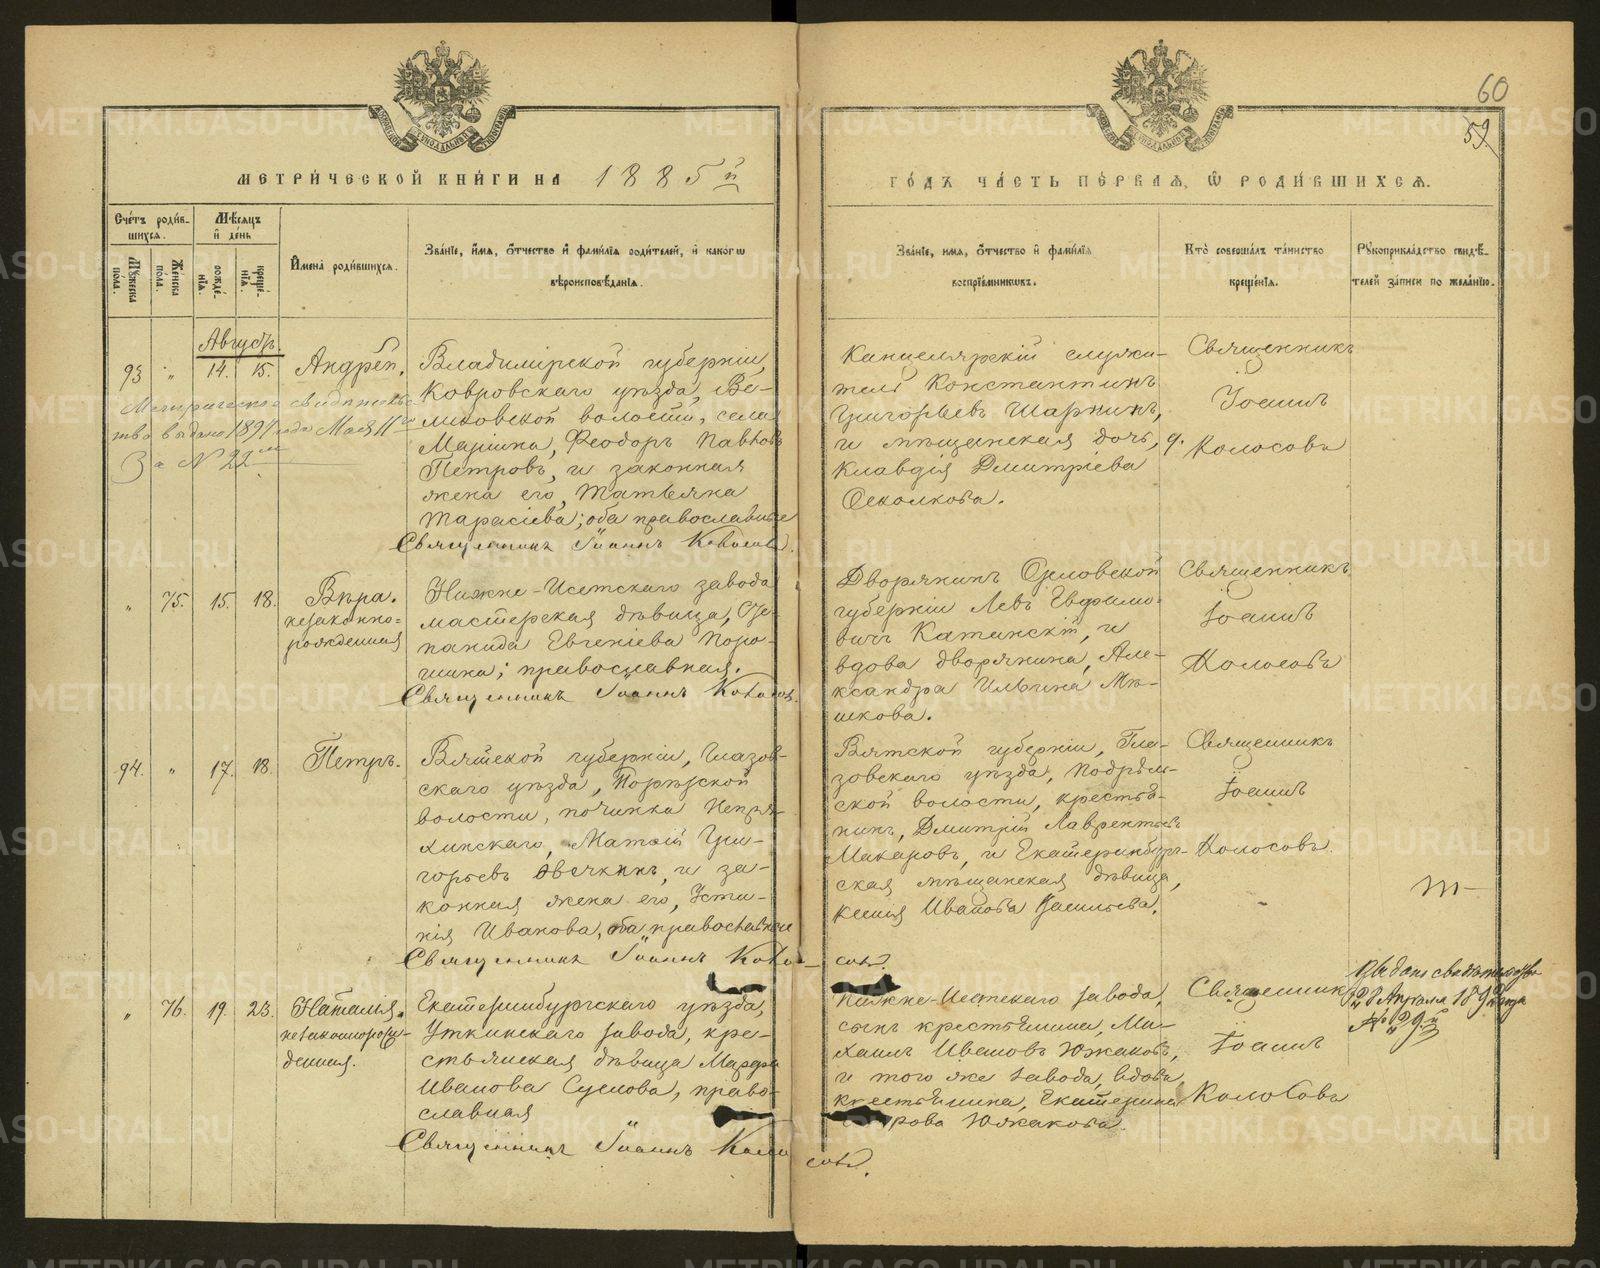 60
59.
МЕТРИ́ЧЕСКОЙ КНИ́ГИ НА 1885й
ГО́ДЪ ЧА́СТЬ ПЕ́РВАЯ, Ѿ РОДИ́ВШИХСЯ.
Сче́тъ роди́в-
шихся.
Му́жеска по́ла.
Же́нска по́ла.
Мѣ́сяцъ
и҆ де́нь
рожде́-
нїя.
креще́-
нїя.
И҆мена̀ роди́вшихся.
Зва́нїе, и҆́мя, ѻ҆́тчество и҆ фами́лїя роди́телей, и҆ како́гѡ
вѣроисповѣ́данїя.
Зва́нїе, и҆мя, ѻ҆́тчество и҆ фами́лїя
воспрїе́мниковъ.
Кто̀ соверша́лъ та́инство
креще́нїя.
Рꙋкоприкла́дство свидѣ́-
телей за́писи по жела́нїю.
Августъ.
93 " 14. 15. Андрей.
Метрическое свидѣтель-
тво выдано 1897 года Мая 11го
За № 22м
Владимірской губерніи,
Ковровскаго уѣзда, Ве-
ликовской волости, села
Маріина, Феодоръ Павловъ
Петровъ, и законная
жена его, Татьяна
Тарасіева; оба православные
Священникъ Іоаннъ Колосовъ.
Канцелярскій служи-
тель Константинъ
Григорьевъ Шарнинъ,
и мѣщанская дочь, д.
Клавдія Дмитріева
Осколкова.
Священникъ
Іоаннъ
Колосовъ
" 75. 15. 18. Вѣра.
незаконно-
рожденная
Нижне-Исетскаго завода
мастерская дѣвица, Сте-
панида Евгеніева Поро-
шина; православная.
Священникъ Іоаннъ Колосовъ.
Дворянинъ Орловской
губерніи Левъ Евфимо-
вичъ Катанскій, и
вдова дворянина, Але-
ксандра Ильина Мѣ-
шкова.
Священникъ
Іоаннъ
Колосовъ
94. " 17. 18. Петръ.
Вятской губерніи, Глазов-
скаго уѣзда, Порѣзской
волости, починка Непря-
хинскаго, Матвій Гри-
горьевъ Овечкинъ, и за-
конная жена его, Усти-
нія Иванова, оба православные
Священникъ Іоаннъ Коло-
совъ.
Вятской губерніи, Гла-
зовскаго уѣзда,
ской волости, крестья-
нинъ, Дмитрій Лаврентьевъ
Макаровъ, и Екатеринбург-
ская мѣщанская дѣвица,
Ксенія Иванова Васильева.
Священникъ
Іоаннъ
Колосовъ.
" 76. 19. 23. Наталія.
незаконорож-
денная.
Екатеринбургскаго уѣзда,
Уткинскаго завода, кре-
стьянская дѣвица Марѳа
Иванова Суслова, право-
славная
Священникъ Іоаннъ Коло
совъ.
Нижне-Исетскаго завода,
сынъ крестьянина, Ми-
хаилъ Ивановъ Южаковъ,
и того же завода, вдова
крестьянина, Екатерина
рова Южакова.
Священникъ
Іоаннъ
Колосовъ
Выдано свидѣтельство
8 Апрѣля
№ 29.й
METRIKI.GASO-URAL.RU